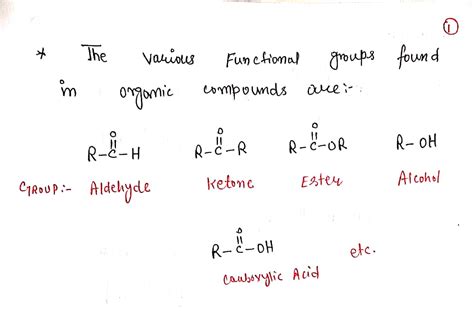 ①
* The various Functional groups found
in organic compounds are:-
O O O
R-C-H R-C-R R-C-OR R-OH
GROUP:- Aldehyde Ketone Ester Alcohol
O
R-C-OH etc.
Carboxylic Acid